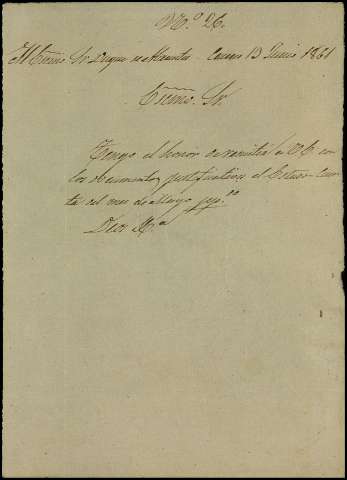 N.º 26.
Al Excmo. Sr. Duque de Abrantes - Cavas 13 Junio 1861
Excmo. Sr.
Tengo el honor de remitir á V.E. con
los documentos justificativos el Estado-Cuen
ta del mes de Mayo pp.do
Dios &.a